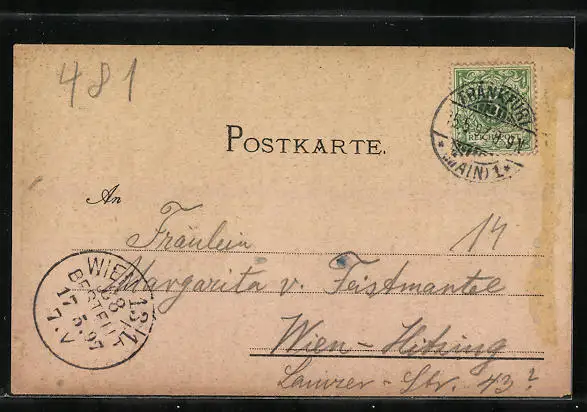 481
FRANKFURT
(MAIN) 1
REICHSPOST
POSTKARTE.
An
Fräulein 14
Margarita v. Feistmantel
Wien-Hitzing
Str. 43?
WIEN 13/1
88
BESTELLT
17.5.97
7.V